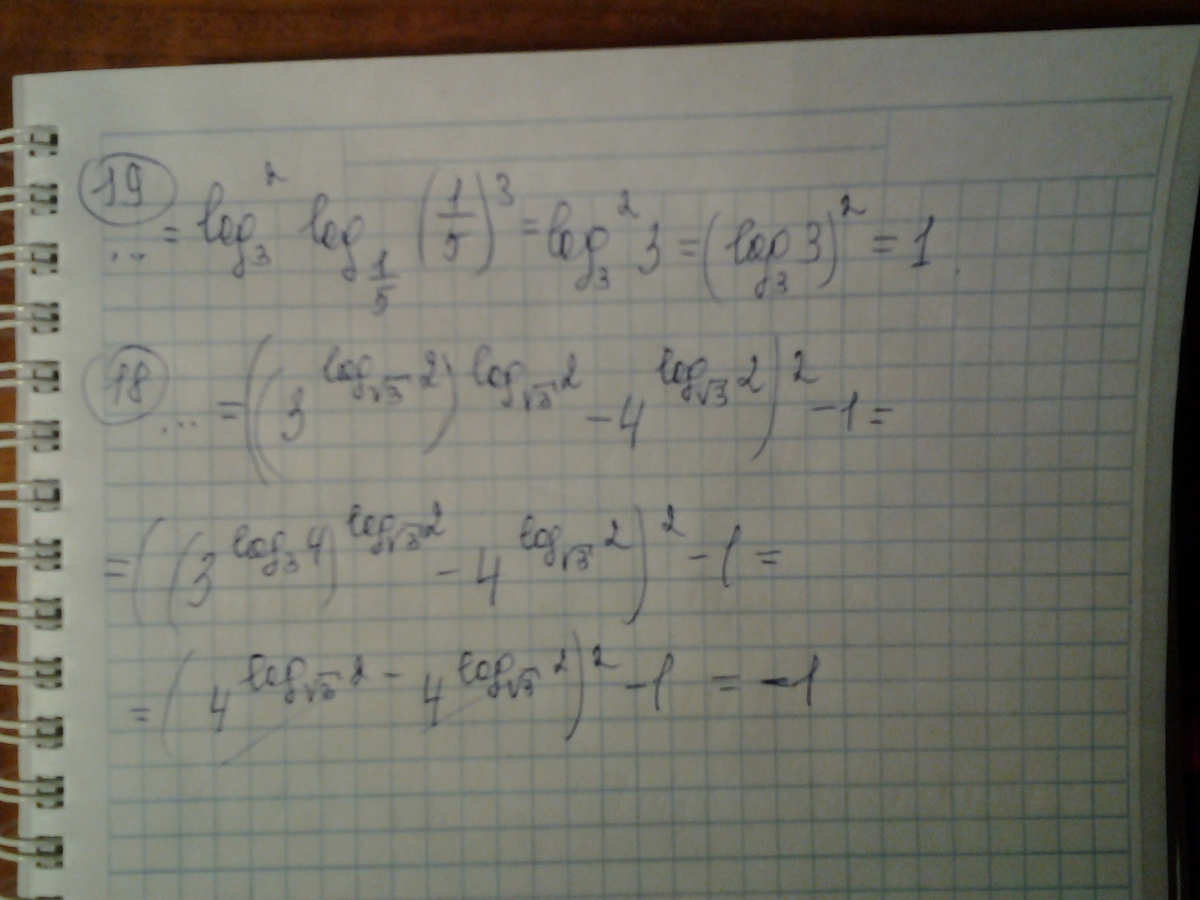 19
... = log₃² log_{1/5} (1/5)³ = log₃² 3 = (log₃ 3)² = 1.
18
... = ((3^{log_{√3} 2})^{log_{√3} 2} - 4^{log_{√3} 2})² - 1 =
= ((3^{log₃ 4})^{log_{√3} 2} - 4^{log_{√3} 2})² - 1 =
= (4^{log_{√3} 2} - 4^{log_{√3} 2})² - 1 = -1